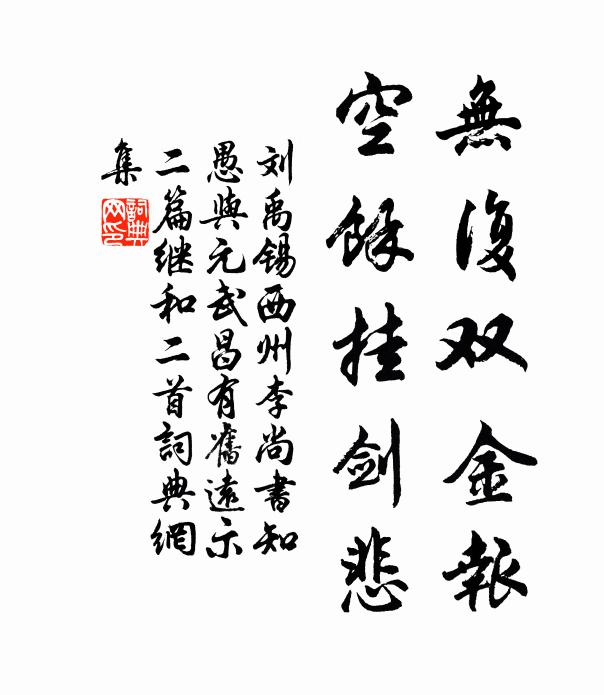 無復双金報
空餘挂剑悲
刘禹锡西州李尚書知
愚與元武昌有舊遠示
二篇继和二首詞典網
集
詞典
网印